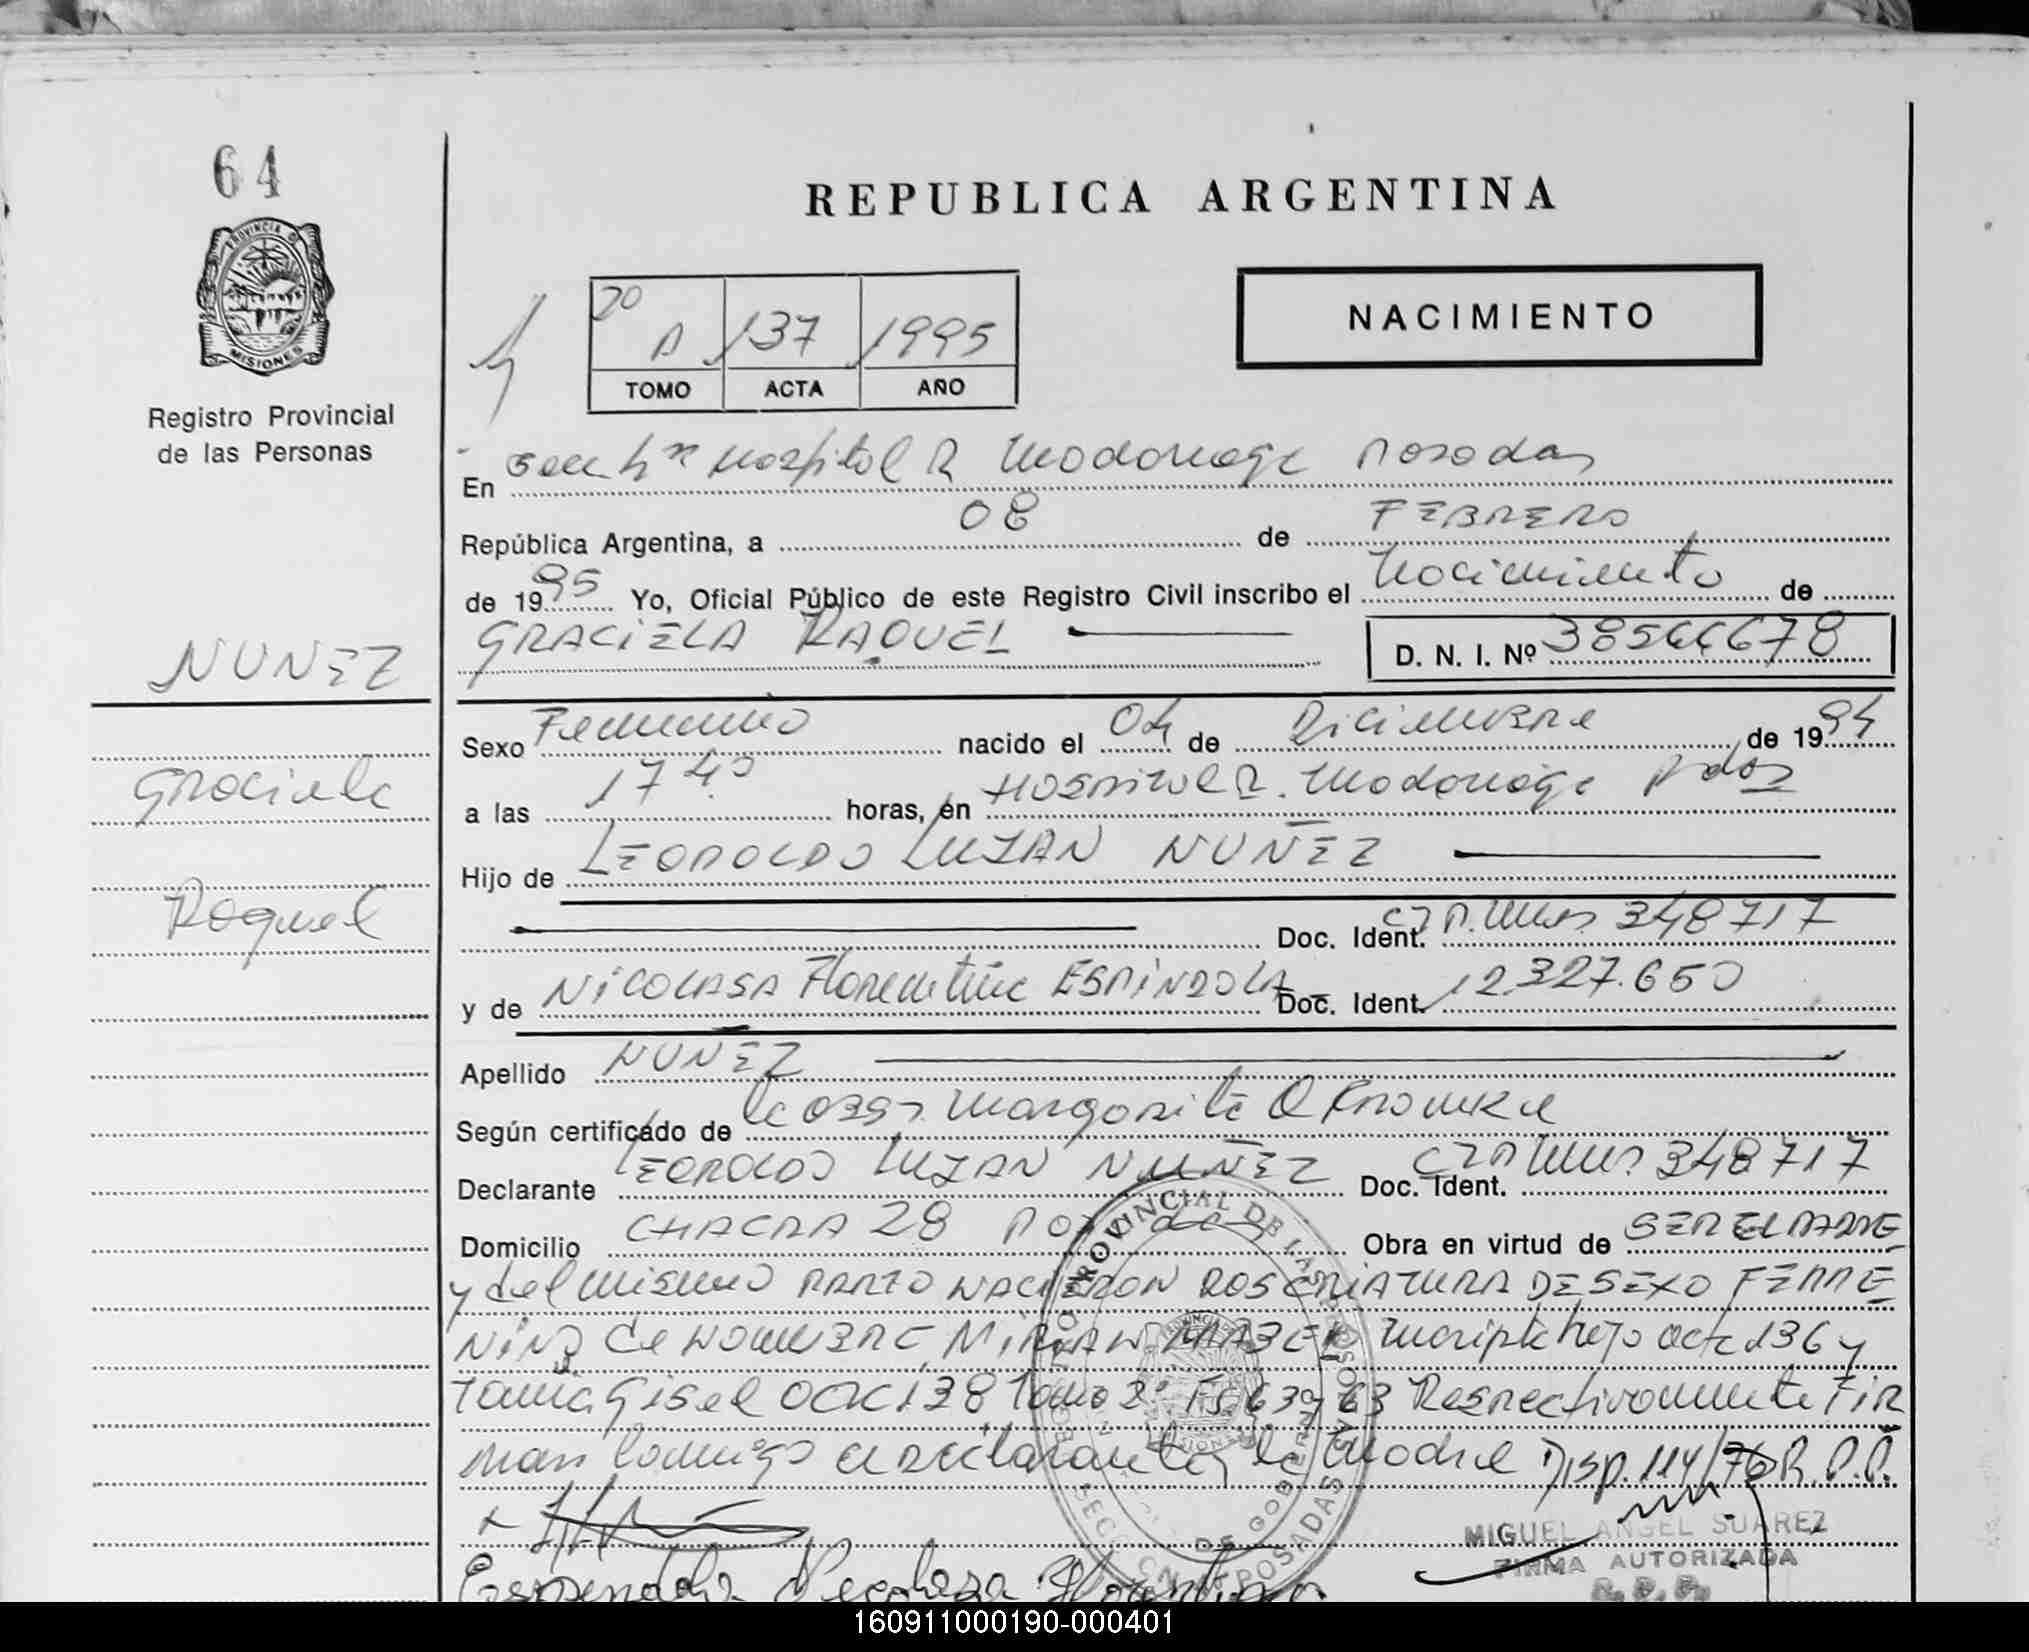 64
REPUBLICA ARGENTINA
PROVINCIA D
MISIONES
Registro Provincial
de las Personas
NACIMIENTO
137 1995
TOMO ACTA AÑO
En Hospital R Madariaga Posadas
República Argentina, a 08 de FEBRERO
de 1995 Yo, Oficial Público de este Registro Civil inscribo el Nacimiento de
GRACIELA RAQUEL D. N. I. Nº 38566678
NUÑEZ
Graciela
Raquel
Sexo Femenino nacido el 04 de Diciembre de 1994
a las 17 40 horas, en Hospital R. Madariaga Pdas
Hijo de LEOPOLDO LUJAN NUÑEZ
Doc. Ident. 348717
y de NICOLASA Florentina ESPINDOLA Doc. Ident. 12.327.650
Apellido NUÑEZ
Según certificado de la Obst. Margarita
Declarante LEOPOLDO LUJAN NUÑEZ Doc. Ident. 348717
Domicilio CHACRA 28 Posadas Obra en virtud de SER EL PADRE
y del mismo PARTO NACIERON DOS CRIATURA DE SEXO FEME
NINO de NOMBRE MIRIAN MABEL inscripta bajo acta 136 y
Tania Gisel acta 138 Tomo 2º Fs 63 y 63 Respectivamente FIR
man conmigo el declarante y la madre Disp. 114/76 R.P.P.
MIGUEL ANGEL SUAREZ
FIRMA AUTORIZADA
R. P. P.
Espindola Nicolasa Florentina
160911000190-000401